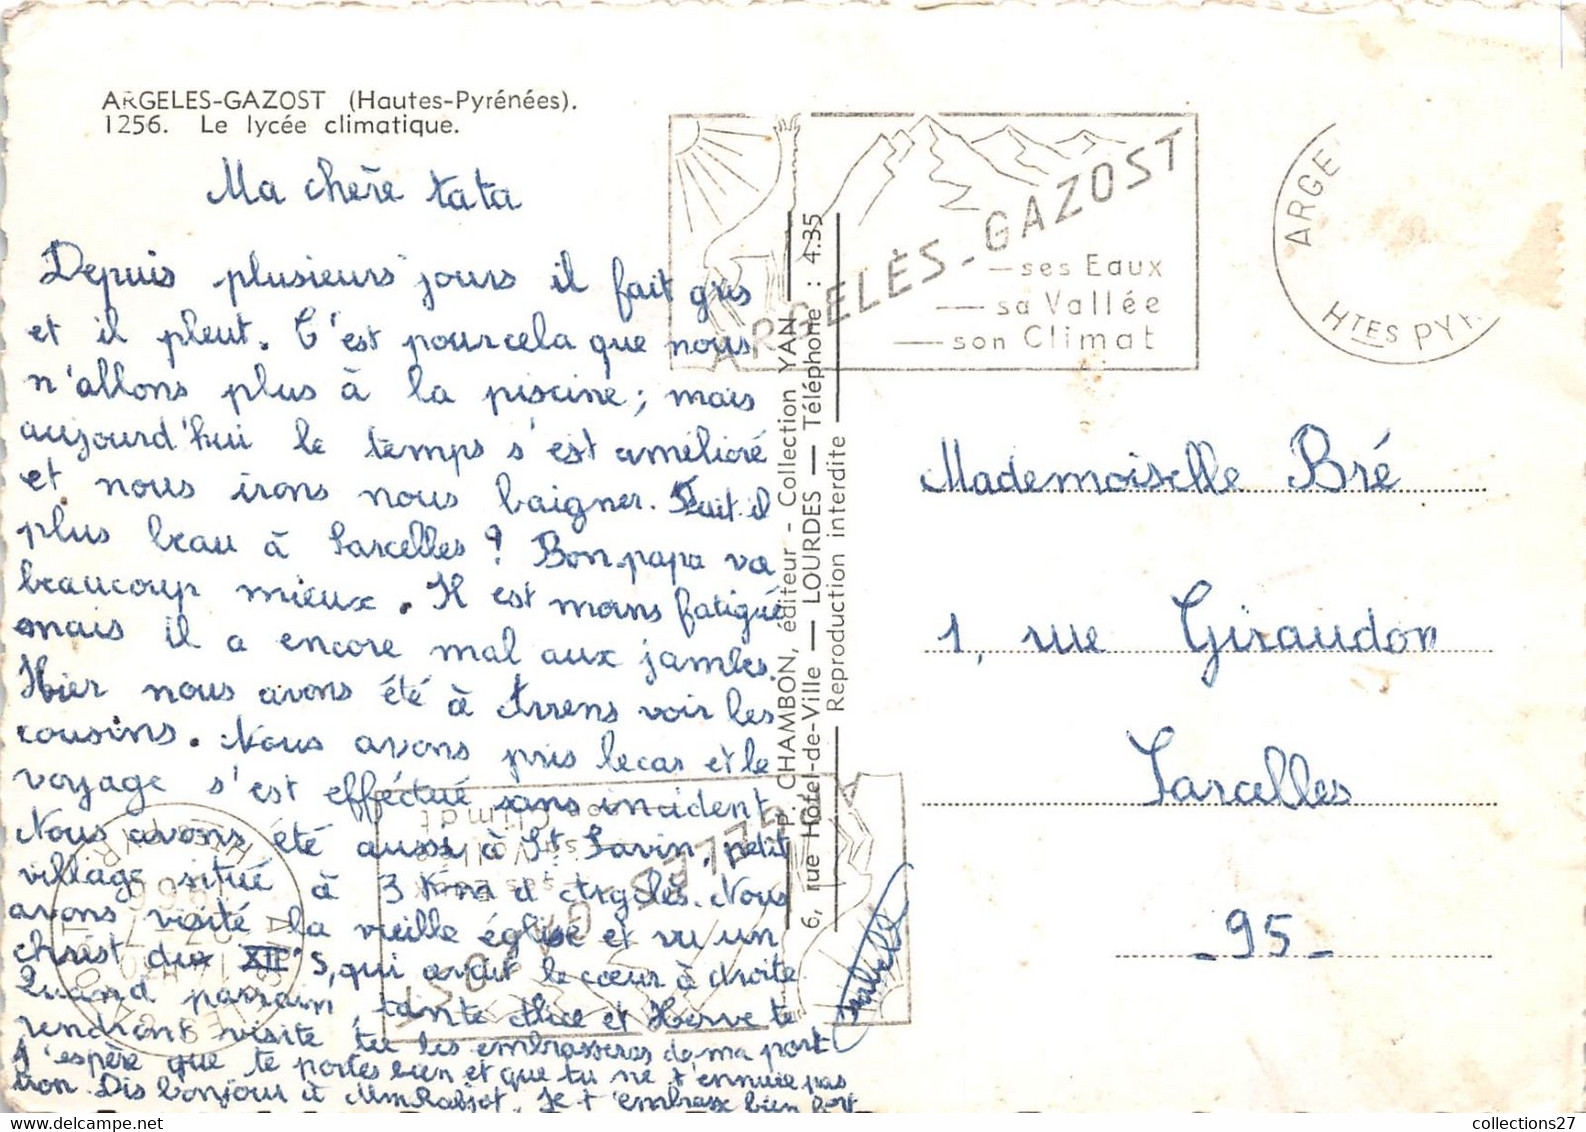 ARGELES-GAZOST (Hautes-Pyrénées).
1256. Le lycée climatique.
Ma chère tata
Depuis plusieurs jours il fait gris
et il pleut. C'est pourcela que nous
n'allons plus à la piscine; mais
aujourd'hui le temps s'est amélioré
et nous irons nous baigner. Fait-il
plus beau à Sarcelles? Bon-papa va
beaucoup mieux. Il est moins fatigué
mais il a encore mal aux jambes.
Hier nous avons été à Arrens voir les
cousins. Nous avons pris lecar et le
voyage s'est efféctué sans incident.
Nous avons été aussi à St Savin, petit
village situé à 3 Km d'Argelès. Nous
avons visité la vieille église et vu un
christ du XII°s, qui avait le cœur à droite
Quand parrain, tante Alice et Herve te
rendront visite tu les embrasseras de ma part
J'espère que te portes bien et que tu ne t'ennuie pas
trop. Dis bonjour à Mm Rabjot. Je t'embrasse bien fort
P. CHAMBON, éditeur - Collection YAN
6, rue Hôtel-de-Ville — LOURDES — Téléphone : 4.35
Reproduction interdite
ARGELÈS-GAZOST
—ses Eaux
—sa Vallée
—son Climat
ARGE
HTES PYR
Mademoiselle Bré
1, rue Giraudon
Sarcelles
-95-
ARGELÈS-GAZOST
collections27